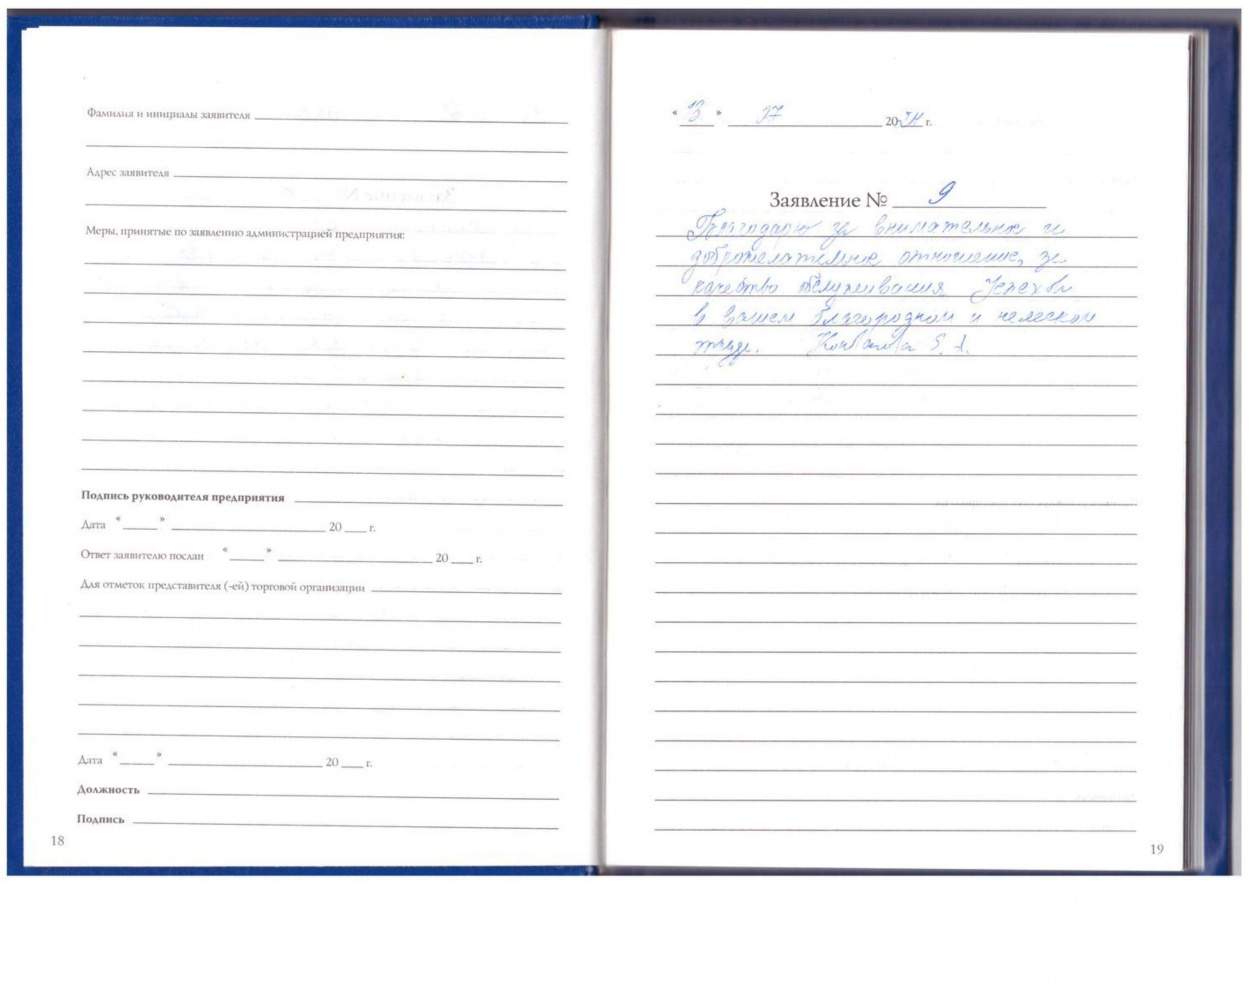 Фамилия и инициалы заявителя
Адрес заявителя
Меры, принятые по заявлению администрацией предприятия:
Подпись руководителя предприятия
Дата « » 20 г.
Ответ заявителю послан « » 20 г.
Для отметок представителя (-ей) торговой организации
Дата « » 20 г.
Должность
Подпись
18
« 13 » 20 г.
Заявление № 9
Благодарю за внимательное и
доброжелательное отношение, за
качество обслуживания Успехов
в вашем благородном и нелегком
труде.
19